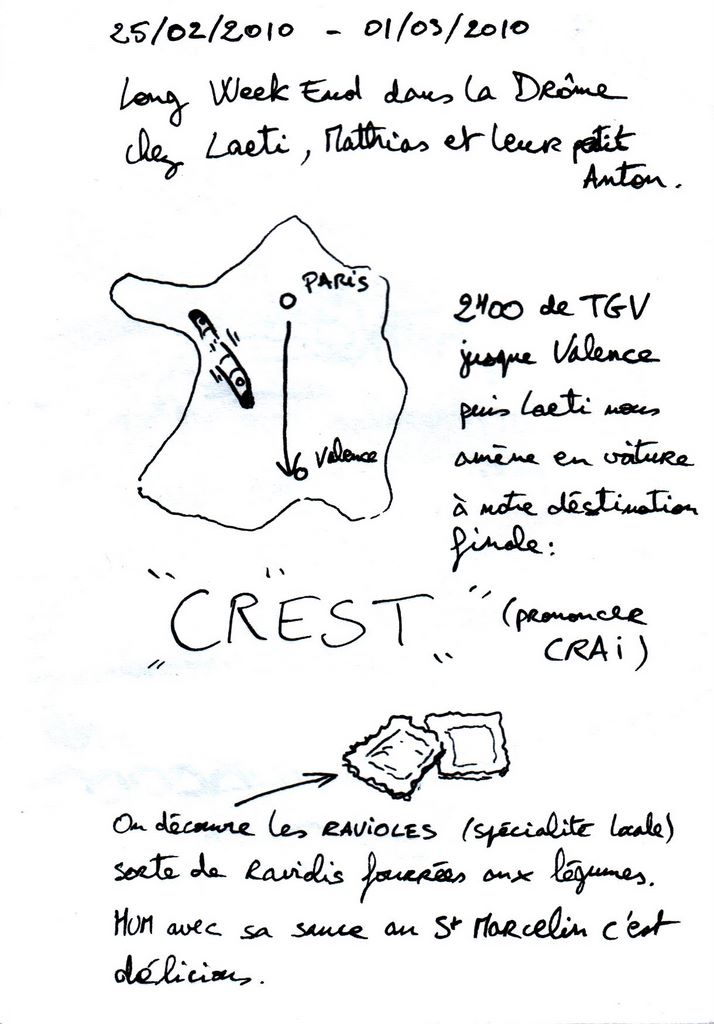 25/02/2010 - 01/03/2010
Long Week End dans la Drôme
chez Laeti, Matthias et leur petit
Anton.
PARIS
Valence
2H00 de TGV
jusque Valence
puis Laeti nous
amène en voiture
à notre déstination
finale :
"CREST"
(prononcer
CRAi)
On découvre les RAVIOLES (spécialité locale)
sorte de Raviolis fourrées aux légumes.
MUM avec sa sauce au St Marcelin c'est
délicious.